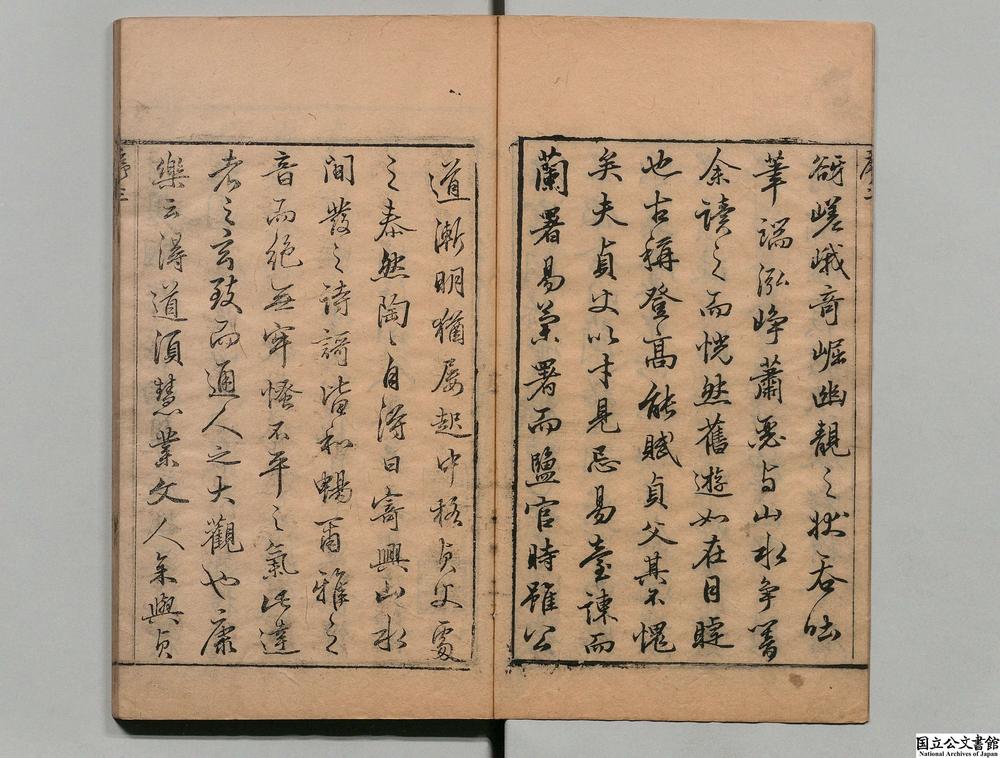 谺嵯峨奇崛幽靚之狀吞吐
筆端泓崢蕭瑟与山水爭響
余讀之而恍然舊遊如在目睫
也古稱登高能賦貞父其不愧
矣夫貞父以才見忌易臺諫而
蘭署易蘭署而鹽官時雖公
道漸明猶屢起中格貞父處
之泰然陶〻自得日寄興山水
間發之詩謌皆和暢爾雅之
音而絕無牢愁不平之氣此達
者之玄致而通人之大觀也康
樂云得道須慧業文人余與貞
序二
序三
国立公文書館
National Archives of Japan